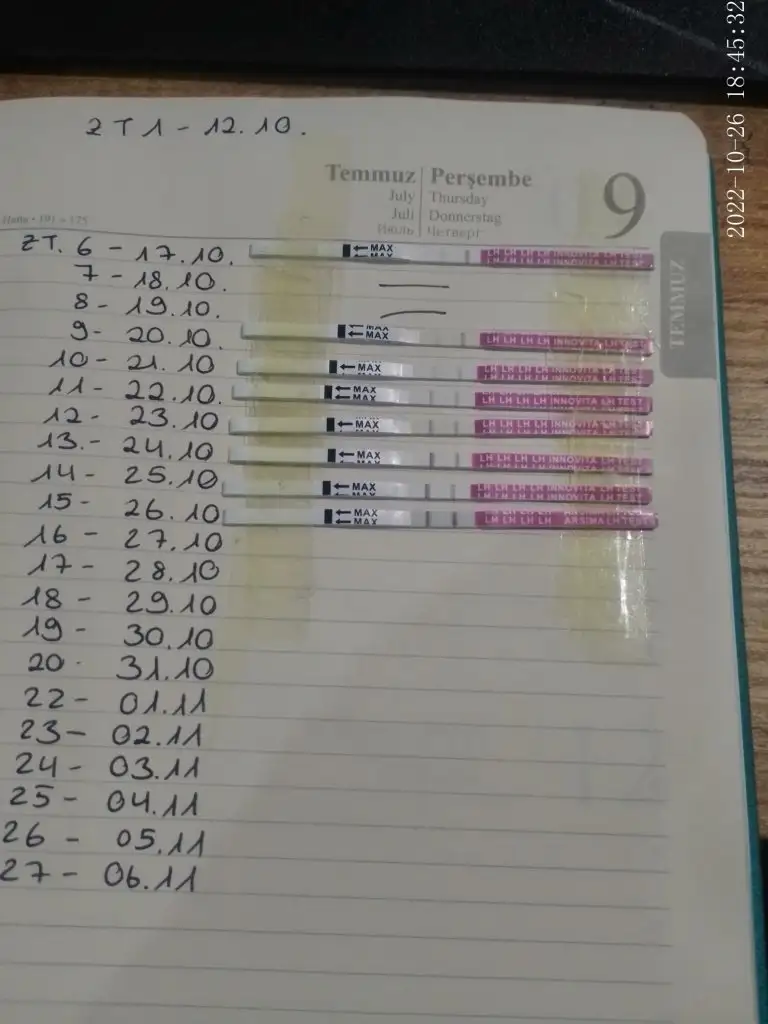 2022-10-26 18:45:32
ZT1 - 12.10.
Temmuz | Perşembe
July | Thursday
Juli | Donnerstag
Июль | Четверг
9
TEMMUZ
ZT. 6 - 17.10. ←MAX
7 - 18.10.
8 - 19.10.
9 - 20.10. ←MAX LH LH LH LH INNOVITA LH TEST
10 - 21.10 ←MAX
11 - 22.10. ←MAX LH LH LH LH INNOVITA LH TEST
12 - 23.10 ←MAX LH LH LH LH INNOVITA LH TEST
13. - 24.10 ←MAX LH LH LH LH INNOVITA LH TEST
14 - 25.10 ←MAX LH LH LH LH INNOVITA LH TEST
15 - 26.10 ←MAX LH LH LH ARSIMA LH TEST
16 - 27.10
17 - 28.10
18 - 29.10
19 - 30.10
20 - 31.10
22 - 01.11
23 - 02.11
24 - 03.11
25 - 04.11
26 - 05.11
27 - 06.11